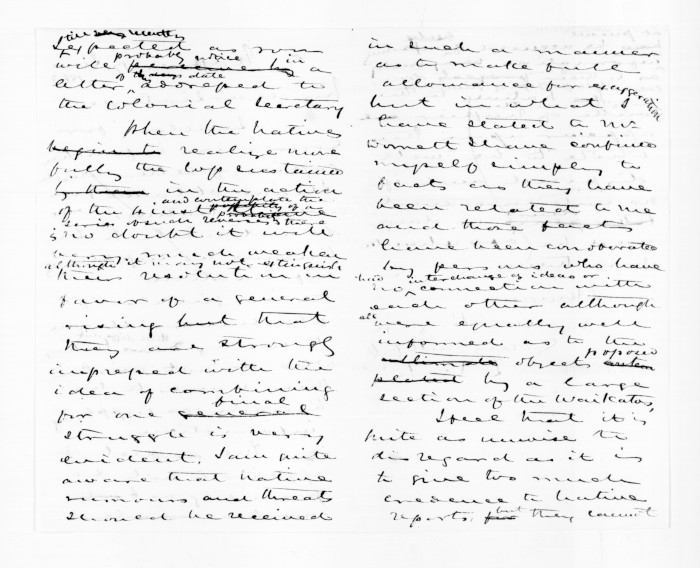 expected as soon
will probably arrive in a
letter of this date addressed to
the Colonial Secretary
When the Natives
begin to realize more
fully the loss sustained
by them in the action
of the
and contemplate the
series of
reverses there
is no doubt it will
much weaken
although it may not extinguish
their resolution in
favor of a general
rising but that
they are strongly
impressed with the
idea of combining
for one general final
struggle is very
evident. I am quite
aware that native
rumours and threats
should be received
in such a manner
as to make full
allowance for exaggeration
but in what I
have stated to Mr
Domett I have confined
myself simply to
facts as they have
been related to me
and those facts
have been corroborated
by persons who have
had no interchange of ideas or
connection with
each other although
all were equally well
informed as to the
ultimate objects proposed
by a large
section of the Waikatos,
I feel that it is
quite as unwise to
disregard as it is
to give too much
credence to native
reports, for but they cannot